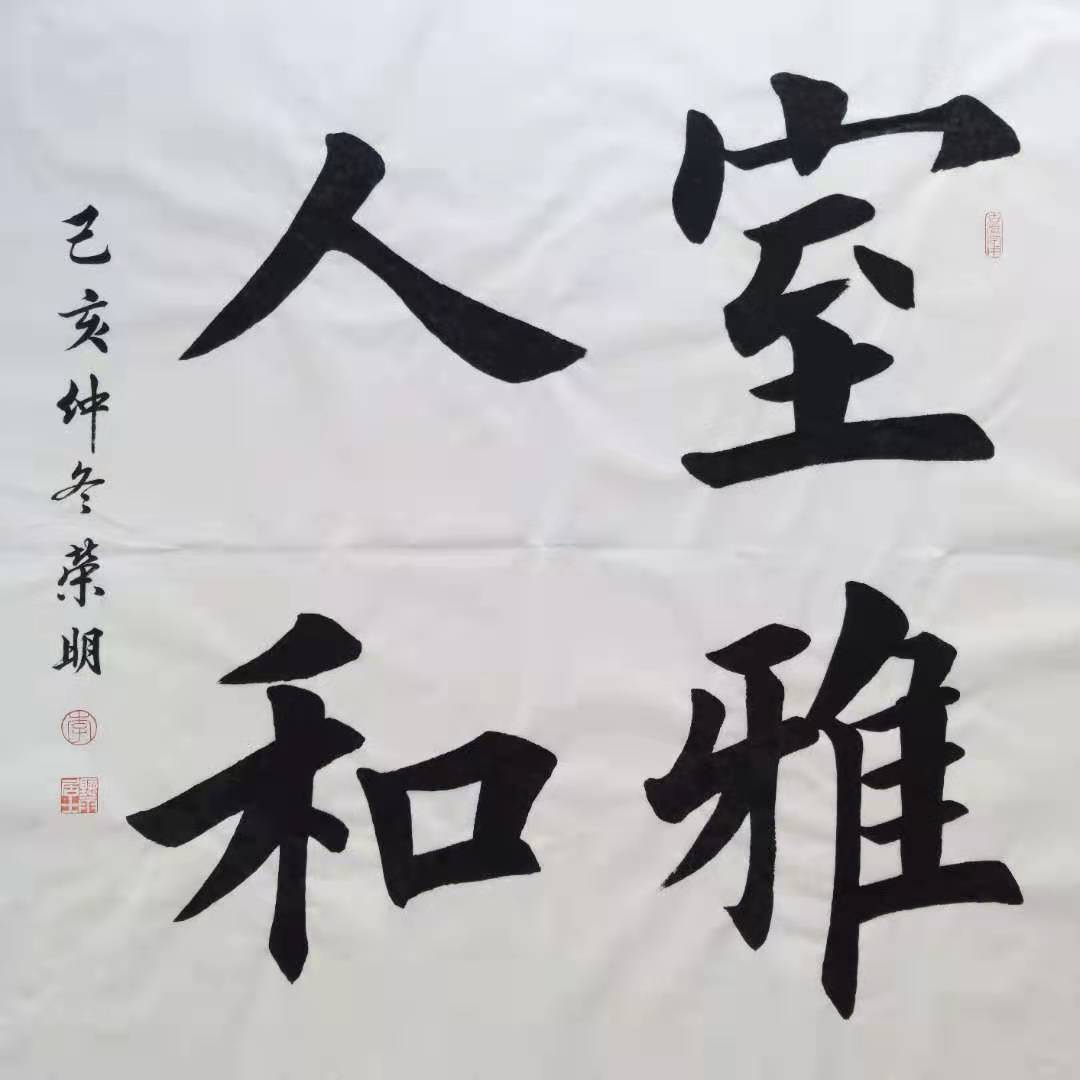 室雅
人和
己亥仲冬荣明